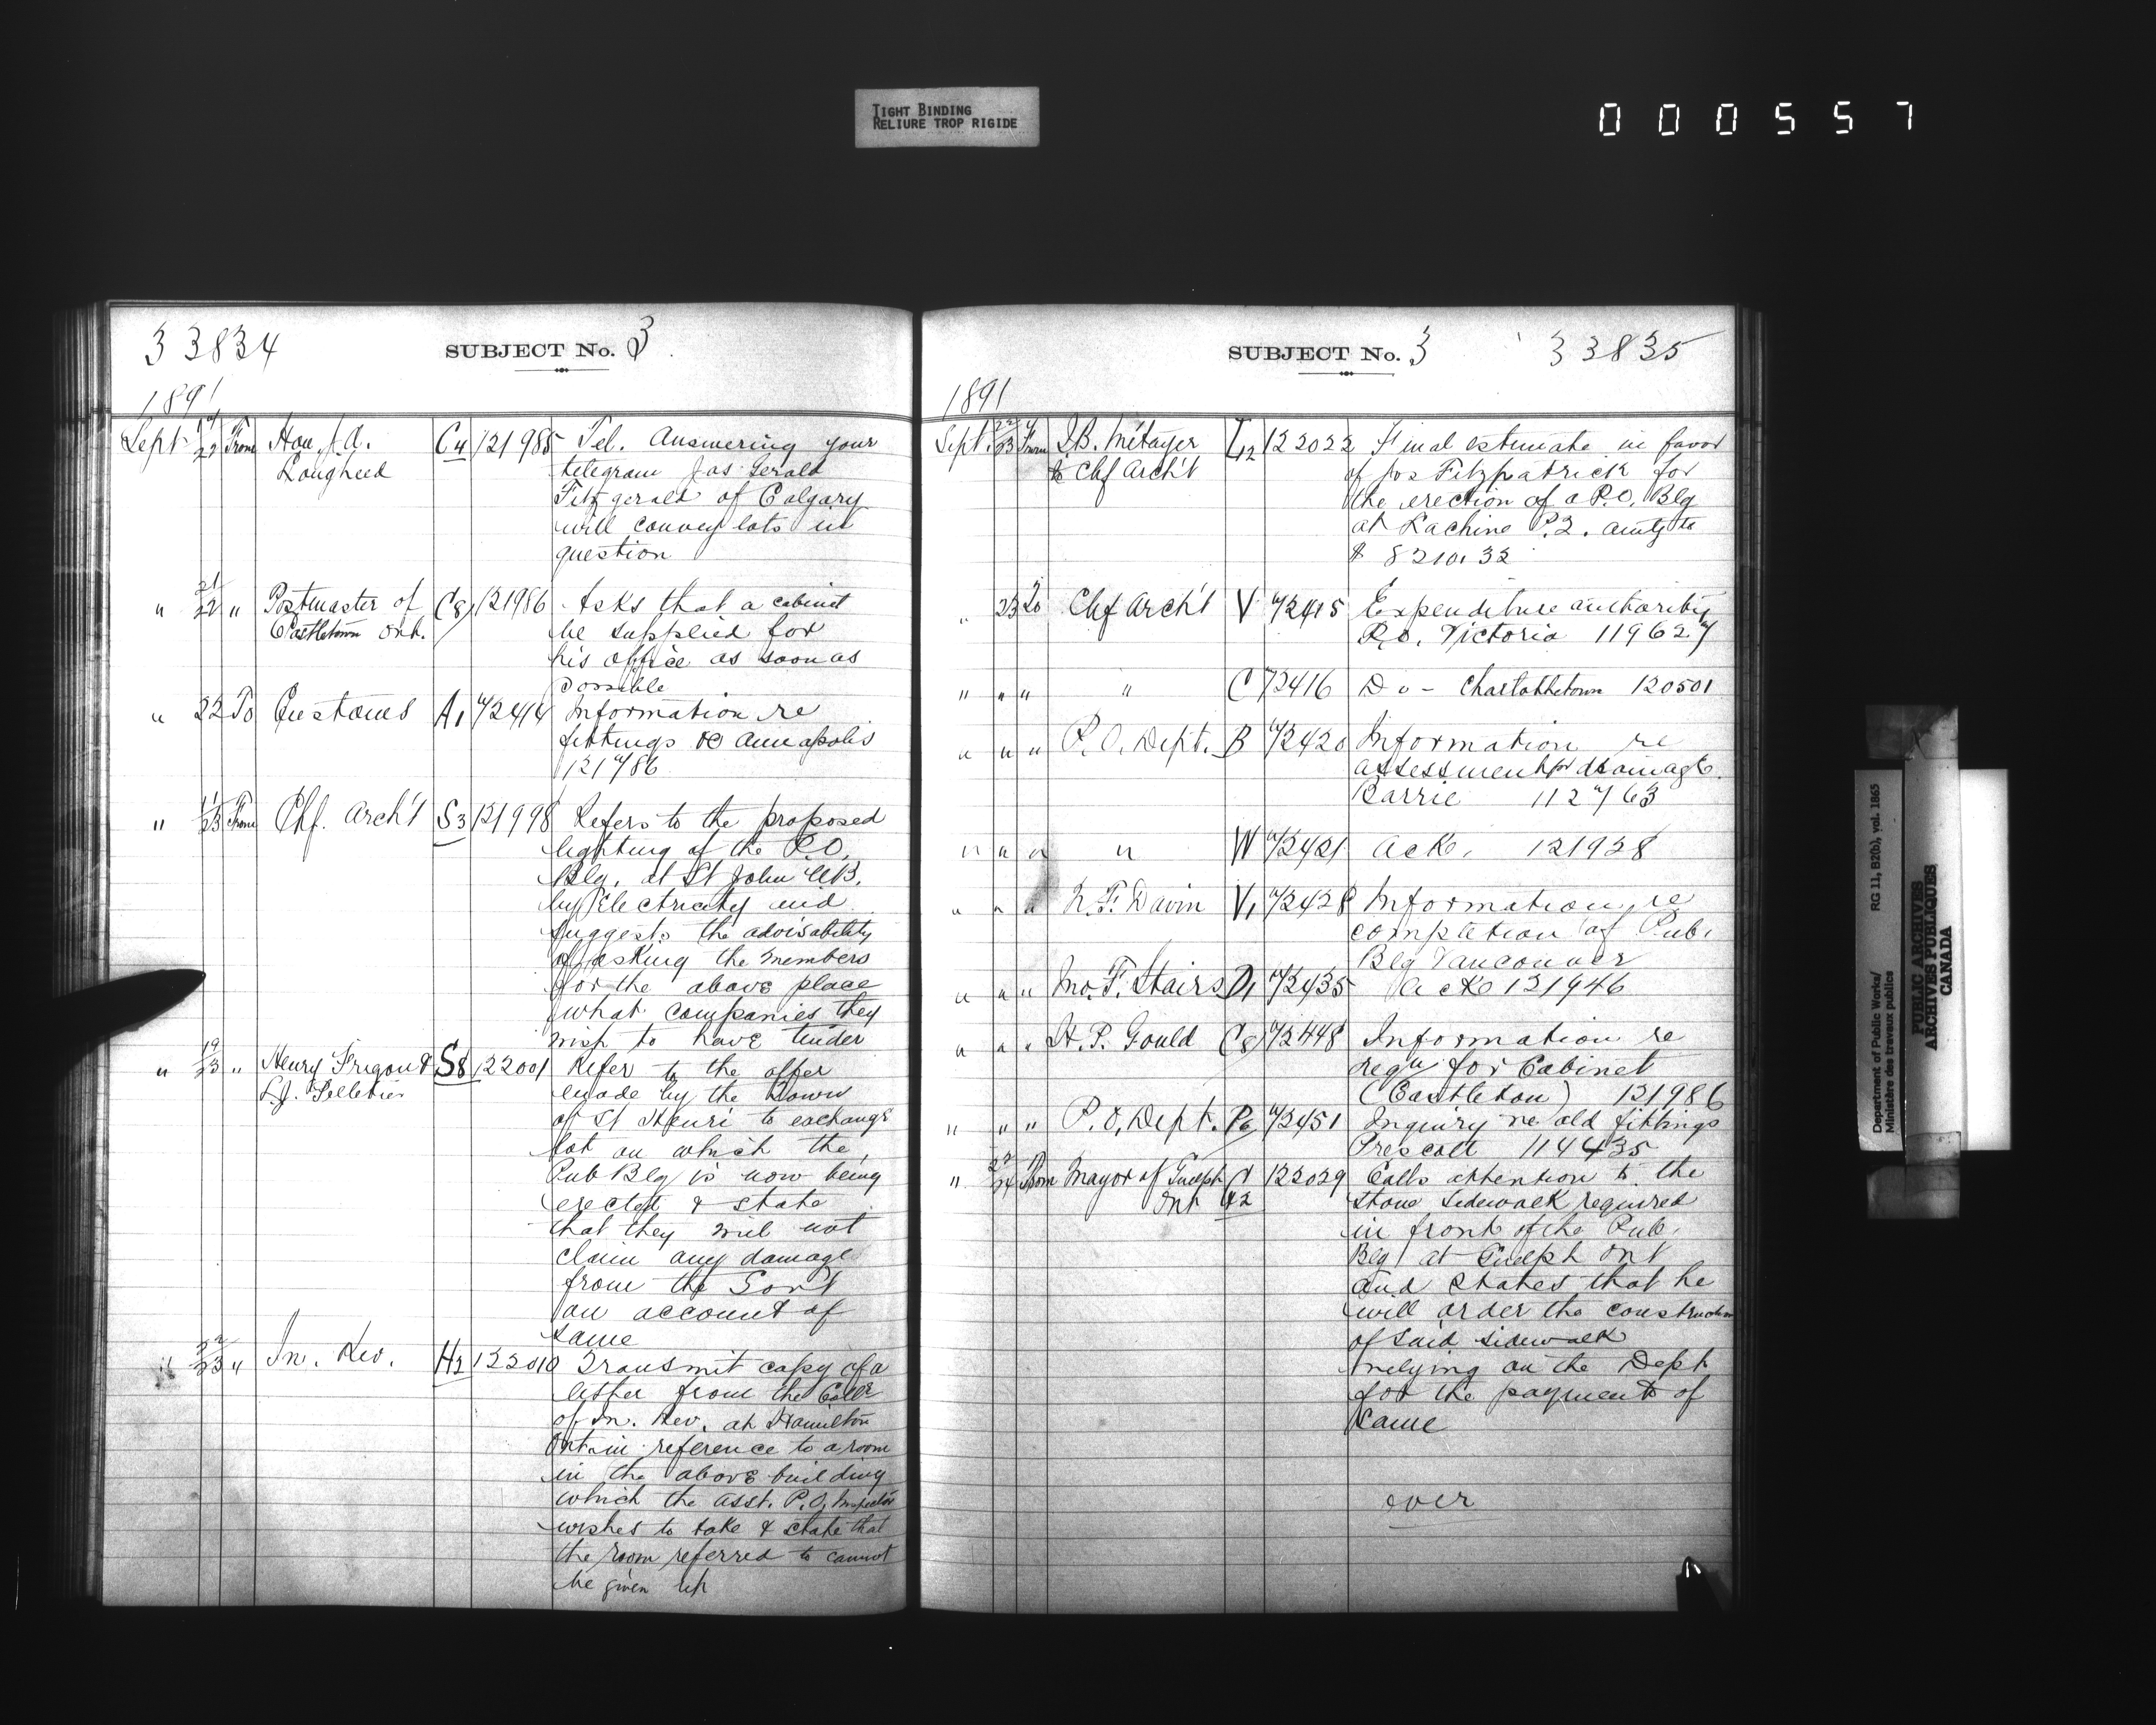 TIGHT BINDING
RELIURE TROP RIGIDE
000557
33834
SUBJECT No. 3
1891
Sept 17/22 From Hon J.A. Lougheed C4 121985 Tel. Answering your
telegram Jas Gerald
Fitzgerald of Calgary
will convey lots in
question
" 21/22 " Postmaster of Castletown Ont. C8 121986 Asks that a cabinet
be supplied for
his office as soon as
possible
" 22 To Customs A1 72414 Information re
fittings &c Annapolis
121786
" 11/23 From Chf. Arch't S3 121998 Refers to the proposed
lighting of the P.O.
Blg. at St John N.B.
by Electricity and
suggests the advisability
of asking the members
for the above place
what companies they
wish to have tender
" 19/23 " Henry Frigon & L.J. Pelletier S8 122001 Refer to the offer
made by the Town
of St Henri to exchange
lot on which the
Pub Blg is now being
erected & state
that they will not
claim any damage
from the Gov't
on account of
same
" 22/23 " In. Rev. H2 122010 Transmit copy of a
letter from the Collr
of In. Rev. at Hamilton
Ont. in reference to a room
in the above building
which the asst. P.O. Inspector
wishes to take & state that
the room referred to cannot
be given up
SUBJECT No. 3
33835
1891
Sept. 22/23 From J.B. Métayer to Chf Arch't L12 122022 Final estimate in favor
of Jos Fitzpatrick for
the erection of a P.O. Blg
at Lachine P.Q. amtg to
$ 8210.32
" 23 To Chf Arch't V 72415 Expenditure authority
P.O. Victoria 119627
" " " " C 72416 Do - Charlottetown 120501
" " " P.O. Dept. B 72420 Information re
assessment for drainage
Barrie 112763
" " " " W 72421 Ack. 121928
" " " N.F. Davin V1 72428 Information re
completion of Pub.
Blg Vancouver
" " " Jno. F. Stairs D1 72435 Ack 121946
" " " H.P. Gould C8 72448 Information re
requ for Cabinet
(Castleton) 121986
" " " P.O. Dept. P6 72451 Inquiry re old fittings
Prescott 114435
" 22/24 From Mayor of Guelph Ont G2 122029 Calls attention to the
stone sidewalk required
in front of the Pub.
Blg at Guelph Ont
and states that he
will order the construction
of said sidewalk
relying on the Dept
for the payment of
same
over
Department of Public Works/
Ministère des travaux publics
RG 11, B2(b), vol. 1865
PUBLIC ARCHIVES
ARCHIVES PUBLIQUES
CANADA